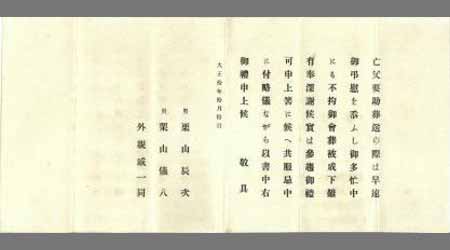 亡父要助葬送の際は早速
御弔慰を忝ふし御多忙中
にも不拘御會葬被成下難
有奉深謝候實は參趨御禮
可申上筈に候へ共服忌中
に付略儀ながら以書中右
御禮申上候 敬具
大正拾年拾月拾日
男 栗山長次
男 栗山儀八
外親戚一同